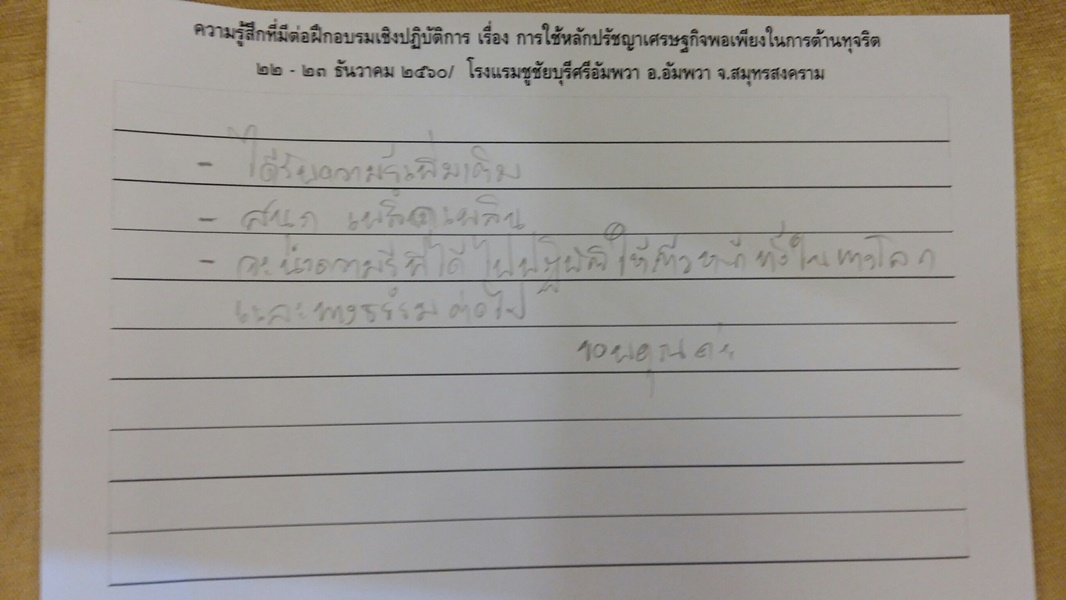 ความรู้สึกที่มีต่อฝึกอบรมเชิงปฏิบัติการ เรื่อง การใช้หลักปรัชญาเศรษฐกิจพอเพียงในการต้านทุจริต
๒๒ - ๒๓ ธันวาคม ๒๕๖๐/ โรงแรมชูชัยบุรีศรีอัมพวา อ.อัมพวา จ.สมุทรสงคราม
- ได้รับความรู้เพิ่มเติม
- สนุก เพลิดเพลิน
- จะนำความรู้ที่ได้ ไปปฏิบัติ ให้ก้าวหน้า ทั้งในทางโลก
และทางธรรม ต่อไป
ขอบคุณค่ะ